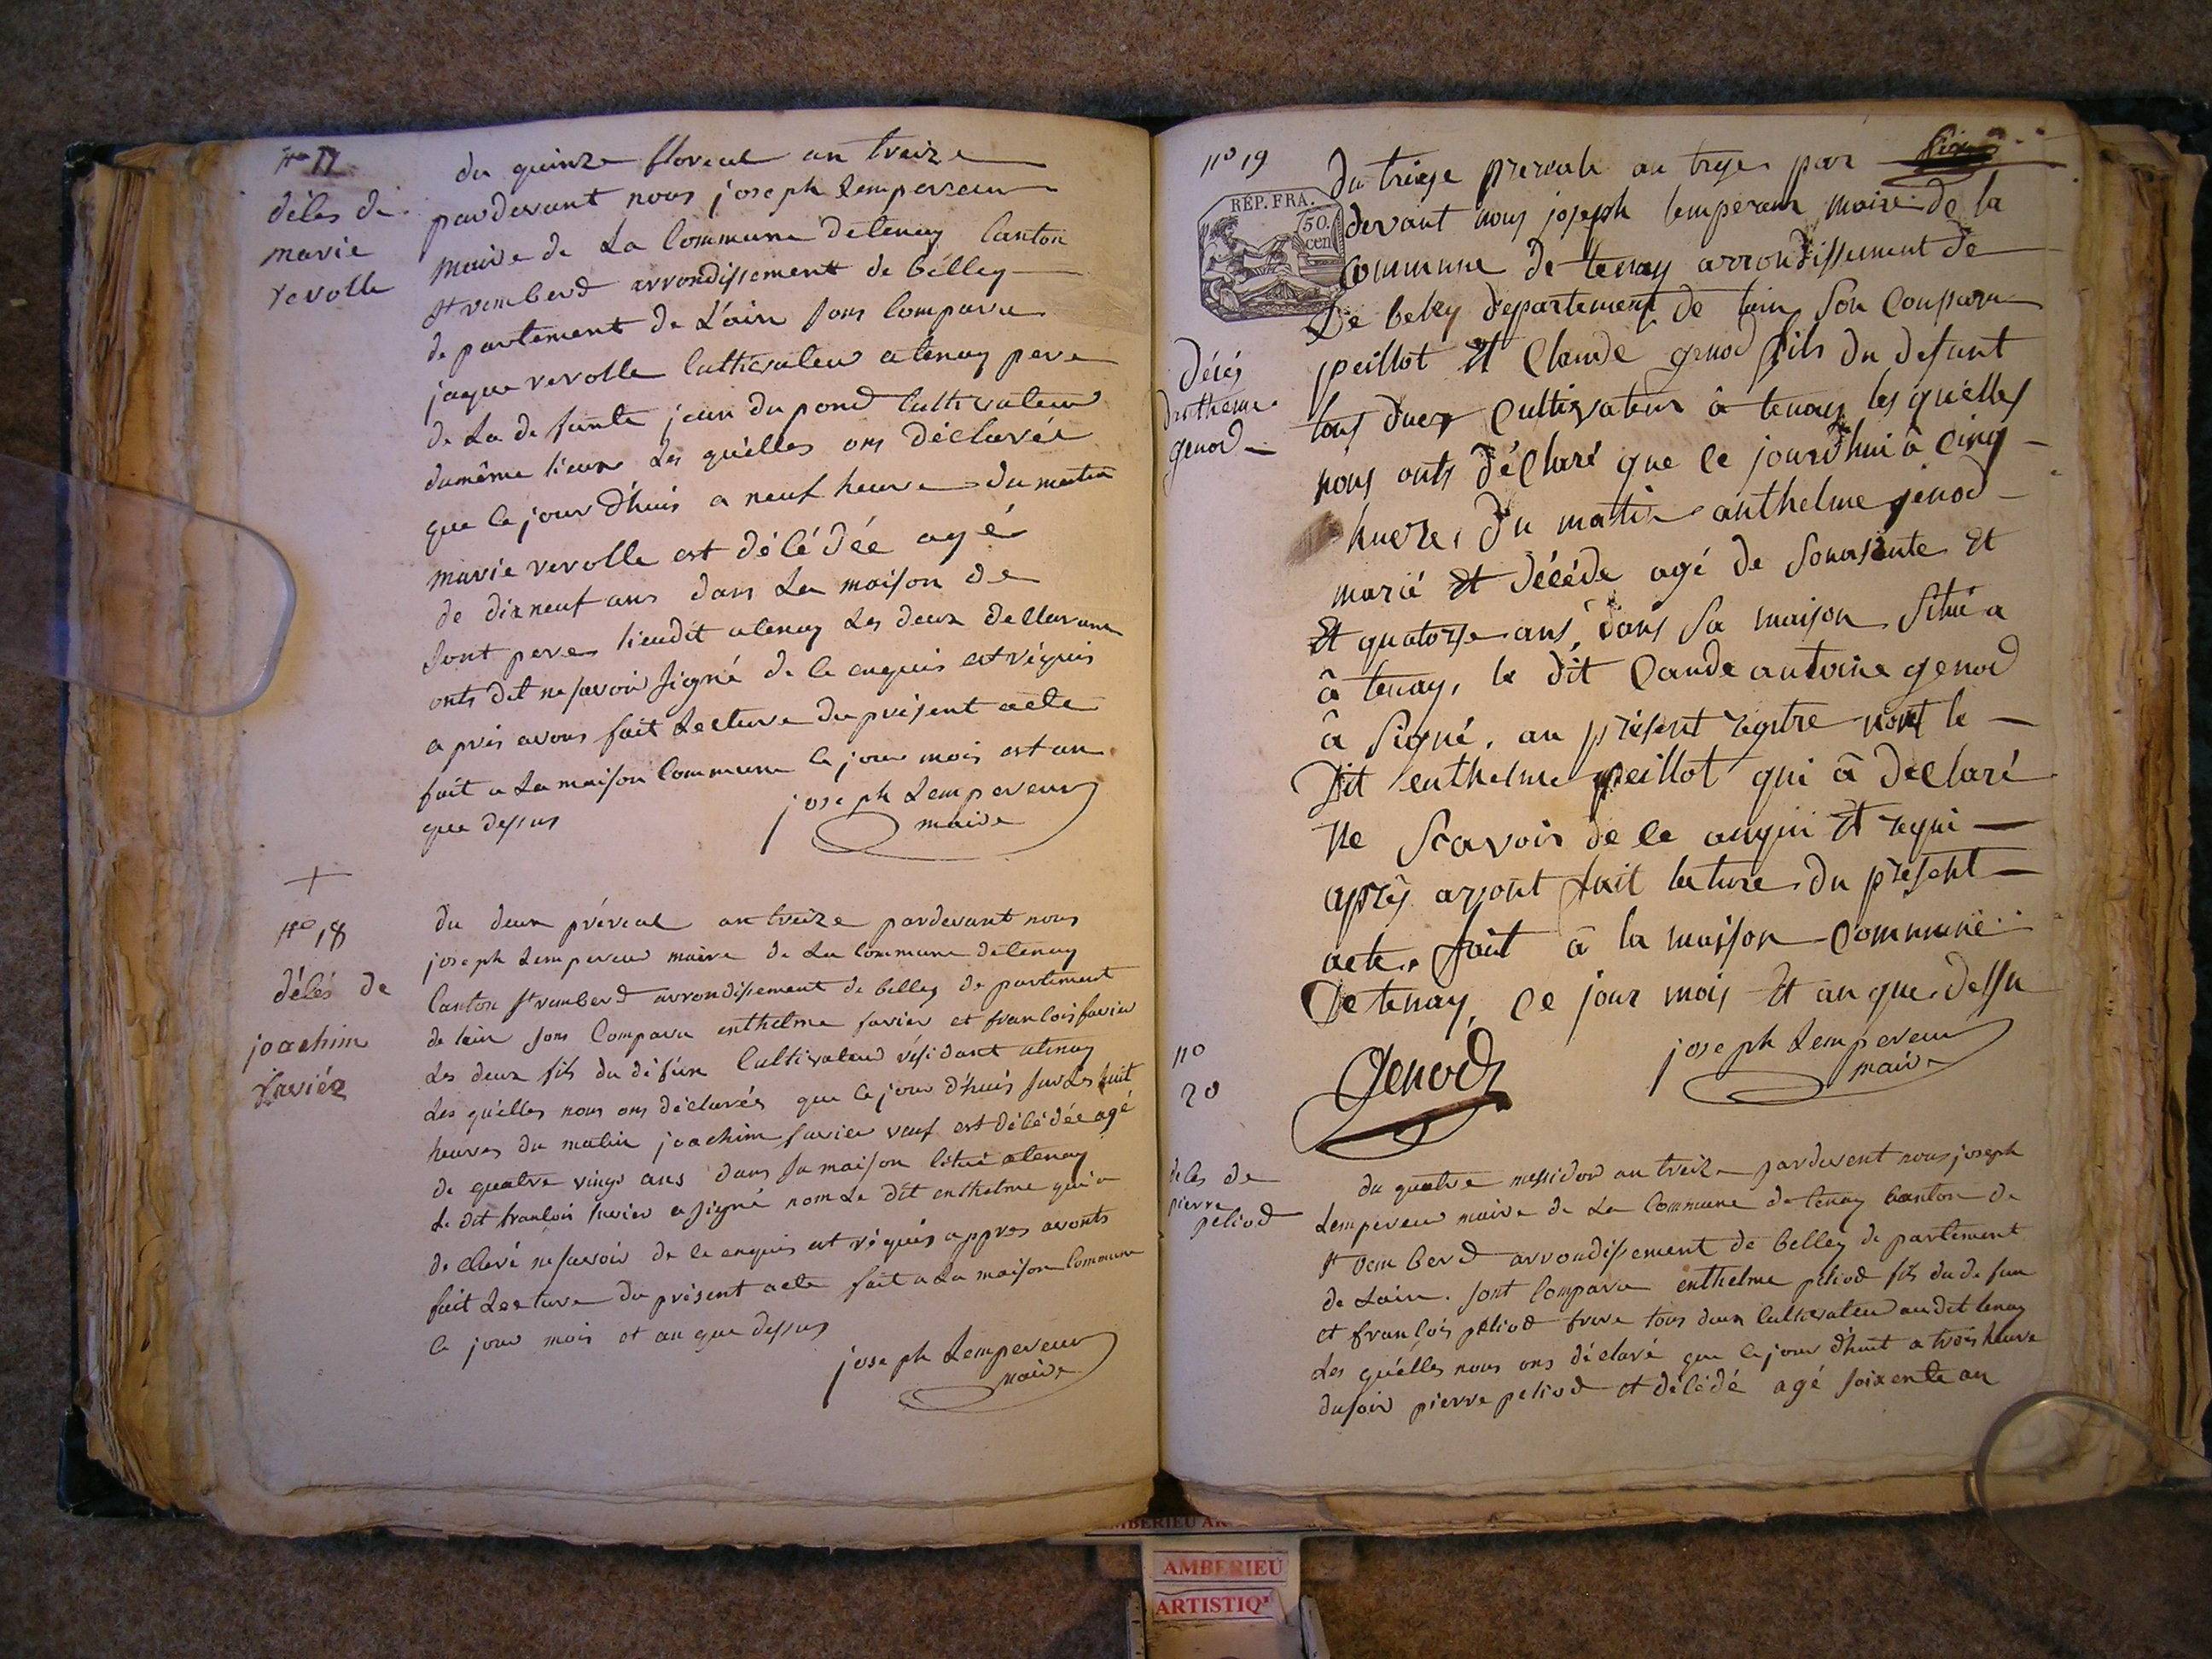 no 17
déles de
marie
revolle
du quinze floreal an treize
pardevant nous joseph Lempereur
maire de La Commune detenay Canton
st rember d arrondissement de bélley
de partement de L'ain sons Comparu
jaque revolle Cultivateur a tenay pere
de La de funte jean du pond Cultivateur
dumême lieux Les quélles ons déclarés
que le jour d'huis a neuf heure du matin
marie revolle est délédée agé
de dix neuf ans dans La maison de
sont pere lieudit a tenay Les deux dellarans
onts dit ne savoir signé de le enquis est réquis
a près avons fait Lecture du présent acte
fait a La maison Commune le jour mois est an
que dessus
joseph Lempereur
maire
+
no 18
délés de
joachim
savier
du deux prérial an treize pardevant nous
joseph Lempereur maire de La Commune detenay
Canton st rember d arrondissement de belley de partement
de lain sons Comparu enthelme savier et franlois savier
Les deux fils du défun Cultivateur résidant atenay
Les quélles nous ons déclarés que le jour d'huis sur Les huit
heures du matin joachim savier veuf est délédée agé
de quatre vings ans dans sa maison litué atenay
Le dit franlois savier a signé nom Le dit enthelme qui a
de claré ne savoir de le enquis et réquis appres avonts
fait Lecture du présent acte fait a La maison Commune
le jour mois et an que dessus
joseph Lempereur
maire
no 19
RÉP. FRA.
50.
cen
décés
danthelme
genod
du treize prereale an treze par
devant nous joseph lempereur maire de la
Commune de tenay arrondissement de
De beley departement de lain Son Comparu
peillot Et Claude genod fils du defunt
tous duex Cultivateur â tenay les quelles
nous onts déclaré que le jourd'hui â cinq
huere, du matin anthelme genod
marié Et décéde agé de Soixsante Et
Et quatorse ans, dans sa maison situé a
â tenay, le dit Caude antoine genod
â signé, au présent regitre nont le
Dit enthelme peillot qui â declaré
Ne Scavoir de le anqui Et requi
apres avont fait lecture du present
acte, fait â la maison Commune
De tenay, ce jour mois Et an que dessu
Genod
joseph Lempereur
maire
no
20
délés de
pierre
peliod
du quatre messidor an treize pardevent nous joseph
Lempereur maire de La Commune de tenay Canton de
st remberd arrondissement de belley de partement
de Lain. sont Comparu enthelme peliod fils du de fun
et franlois peliod frere tous deux Cultivateur audit tenay
Les quélles nous ons déclaré que le jour d'huit a trois heure
du soir pierre peliod et délédé agé soixente an
AMBERIEU
ARTISTIQ